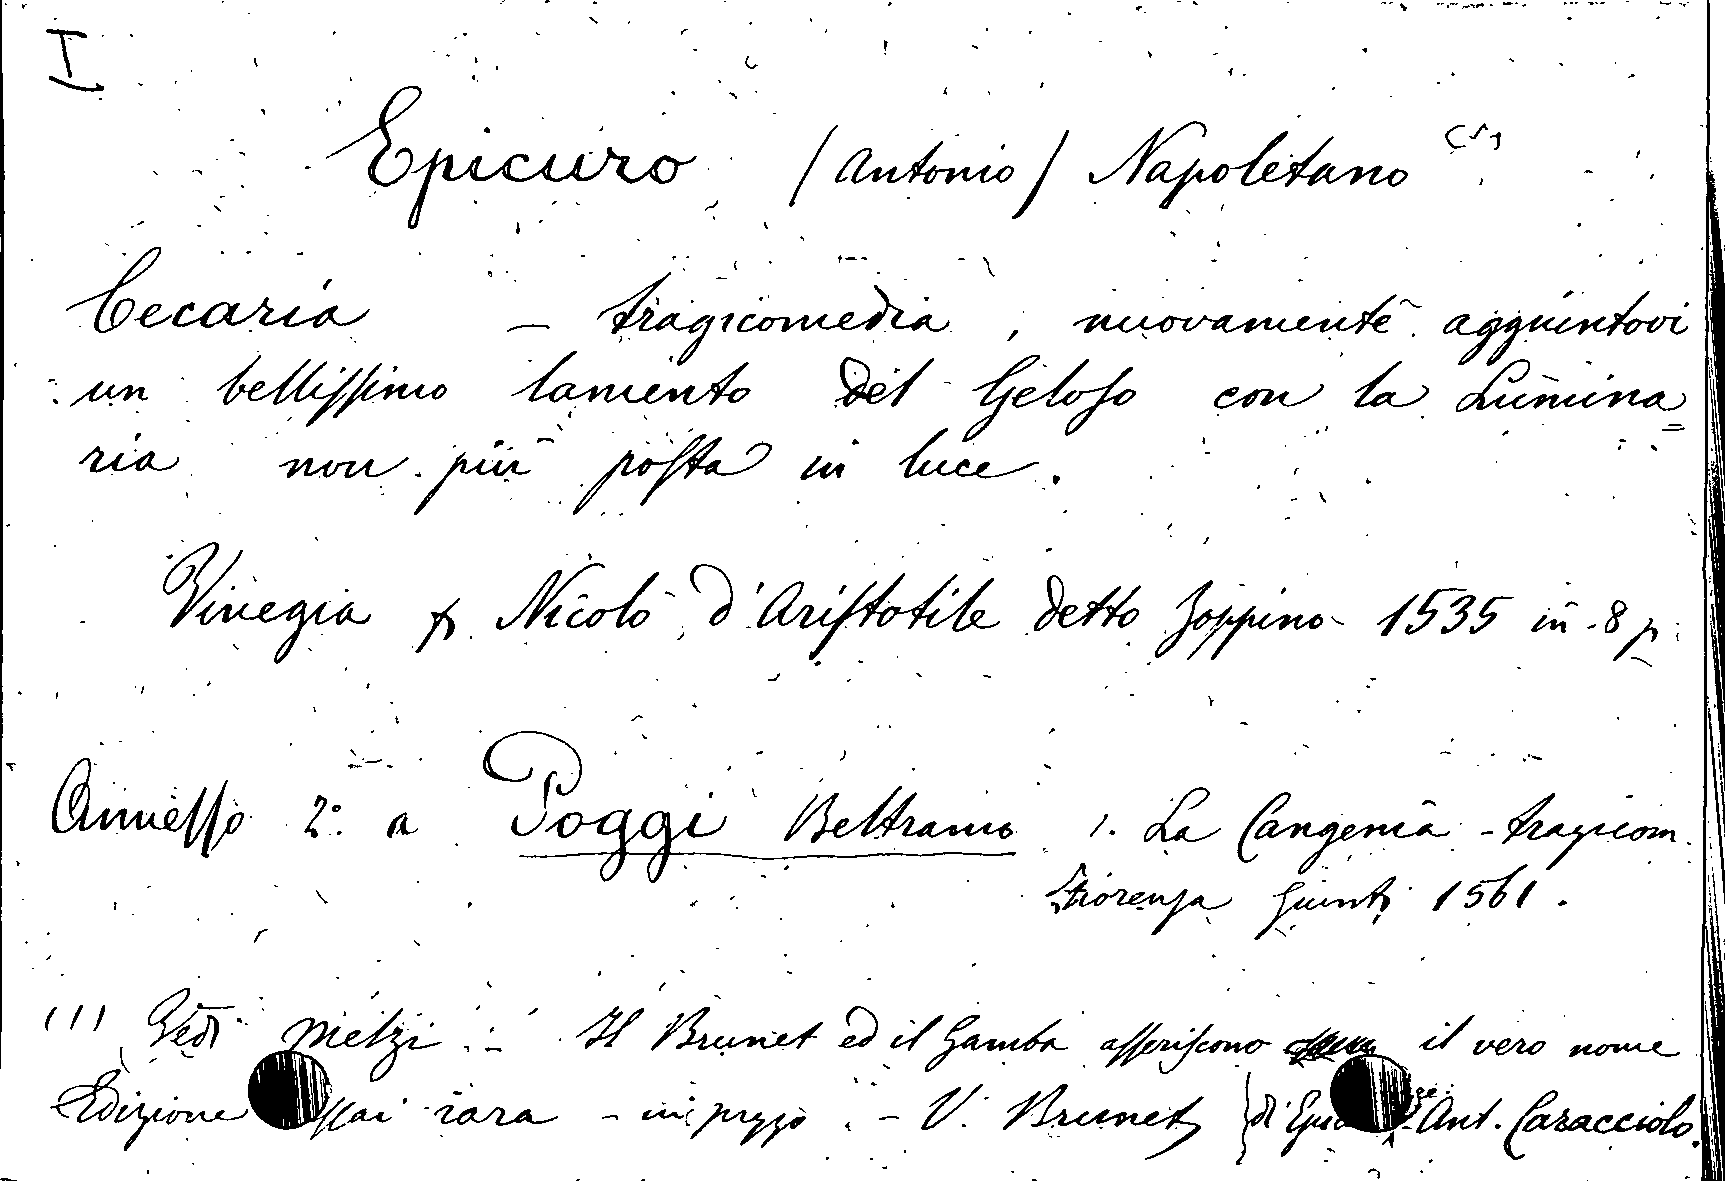 I
Epicuro (Antonio) Napoletano (1)
Cecaria – tragicomedia, nuovamente aggiuntovi
un bellissimo lamento del Geloso con la Lumina=
ria non più posta in luce.
Vinegia Nicolò d'Aristotile detto Zoppino 1535 in-8 p.
Annesso 2º. a Poggi Beltramo 1. La Cangenia - tragicom.
Fiorenza Giunti 1561.
(1) Vedi Melzi - Il Brunet ed il Gamba asseriscono il vero nome
Edizione rara - V. Brunet di Ant. Caracciolo.